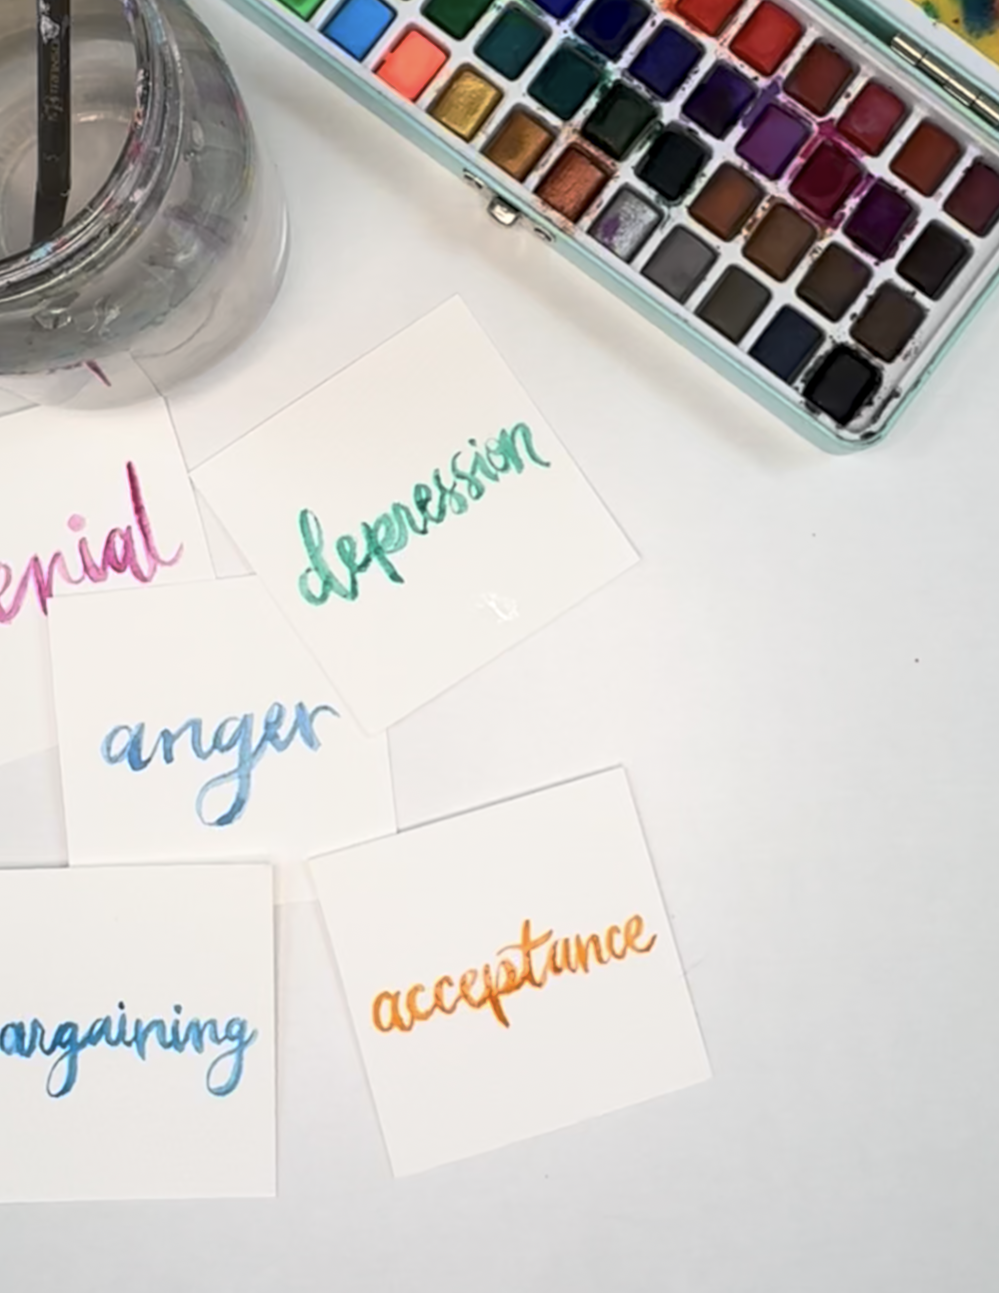 depression
enial
anger
acceptance
argaining